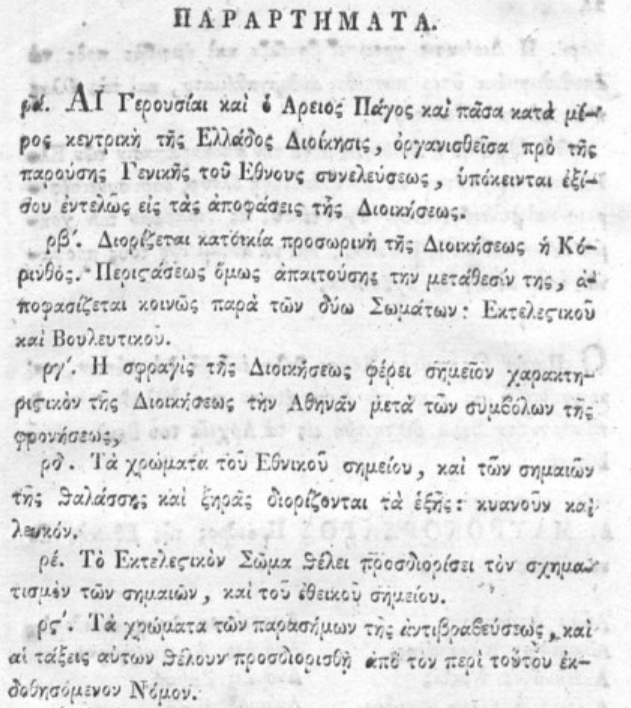 ΠΑΡΑΡΤΗΜΑΤΑ.
ρά. ΑΙ Γερουσίαι καὶ ὁ Αρειος Πάγος καὶ πᾶσα κατὰ μέ-
ρος κεντρικὴ τῆς Ελλάδος Διοίκησις, ὀργανισθεῖσα πρὸ τῆς
παρουσης Γενικῆς τοῦ Εθνους συνελεύσεως, ὑπόκεινται ἐξί-
σου ἐντελως εἰς τὰς ἀποφάσεις τῆς Διοικήσεως.
ρβ´. Διορίζεται κατοικία προσωρινὴ τῆς Διοικήσεως ἡ Κό-
ρινθός. Περιϛάσεως ὅμως ἀπαιτούσης την μετάθεσίν της, ἀ-
ποφασίζεται κοινῶς παρὰ τῶν δύω Σωμάτων: Εκτελεϛικοῦ
καὶ Βουλευτικοῦ.
ργ´. Η σφραγὶς τῆς Διοικήσεως φέρει σημεῖον χαρακτη-
ριϛικὸν τῆς Διοικήσεως τὴν Αθηνᾶν μετὰ τῶν συμβόλων τῆς
φρονήσεως,
ρδ´. Τὰ χρώματα τοῦ Εθνικοῦ σημείου, καὶ τῶν σημαιῶν
τῆς θαλάσσης καὶ ξηρᾶς διορίζονται τὰ ἑξῆς: κυανοῦν καὶ
λευκόν.
ρέ. Τὸ Εκτελεϛικὸν Σῶμα θέλει προσδιορίσει τὸν σχημα-
τισμὸν τῶν σημαιῶν, καὶ τοῦ ἐθεικοῦ σημείου.
ρϛ´. Τὰ χρώματα τῶν παρασήμων τῆς ἀντιβραβεύσεως, καὶ
αἱ τάξεις αὐτων θέλουν προσδιορισθῆ ἀπὸ τον περὶ τούτου ἐκ-
δοθησόμενον Νόμον.